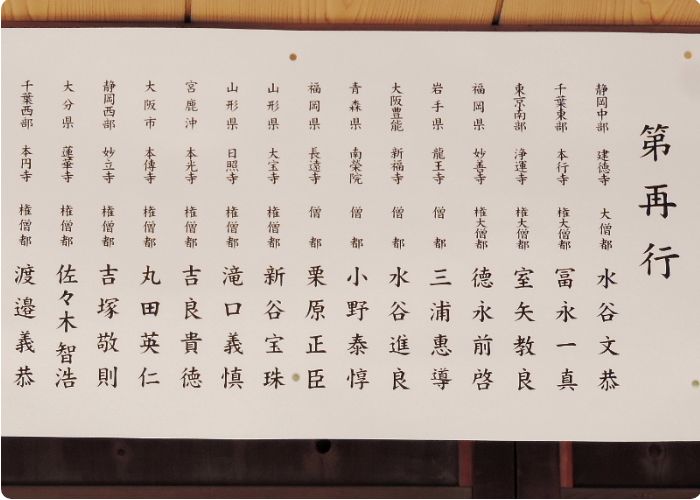 第再行
静岡中部 建徳寺 大僧都 水谷文恭
千葉東部 本行寺 権大僧都 冨永一真
東京南部 浄運寺 権大僧都 室矢教良
福岡県 妙善寺 権大僧都 徳永前啓
岩手県 龍王寺 僧都 三浦惠導
大阪豊能 新福寺 僧都 水谷進良
青森県 南榮院 僧都 小野泰惇
福岡県 長遠寺 僧都 栗原正臣
山形県 大宝寺 権僧都 新谷宝珠
山形県 日照寺 権僧都 滝口義慎
宮鹿沖 本光寺 権僧都 吉良貴徳
大阪市 本傳寺 権僧都 丸田英仁
静岡西部 妙立寺 権僧都 吉塚敬則
大分県 蓮華寺 権僧都 佐々木智浩
千葉西部 本円寺 権僧都 渡邉義恭